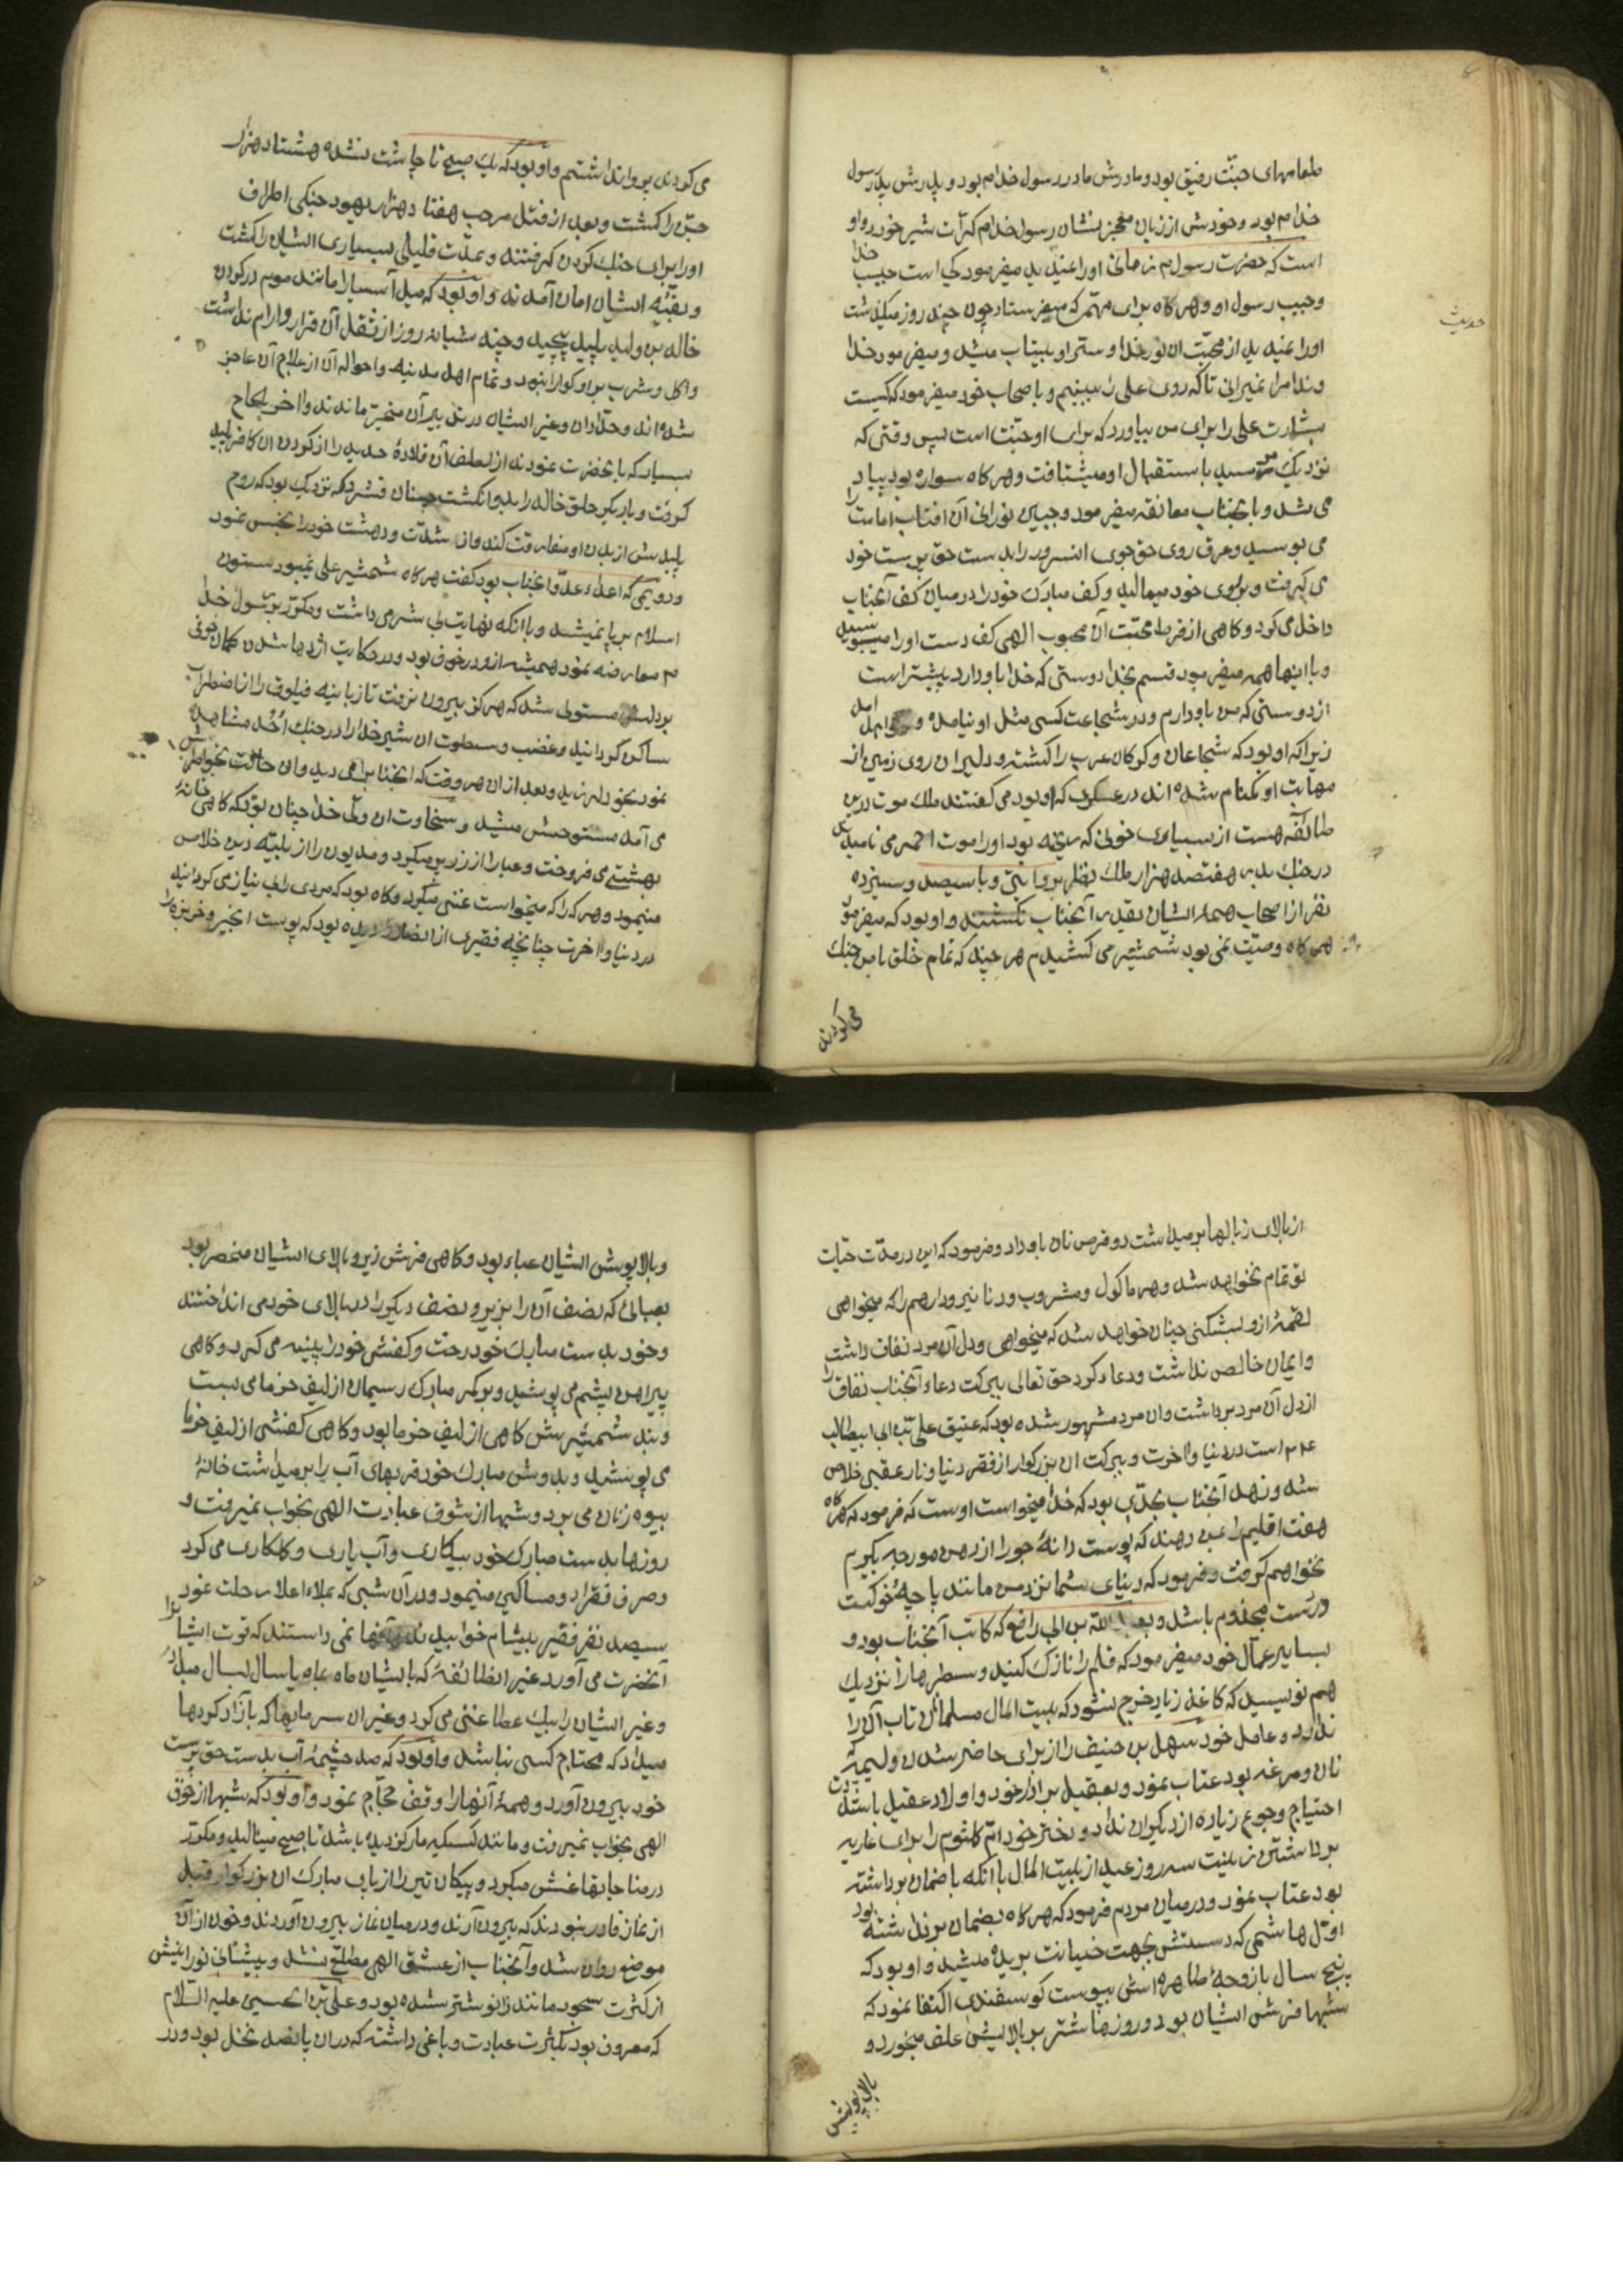 طعامهای جنّت رفیق بود و مادرش مادر رسول خدا م بود و پدرش پدر رسول
خدا م بود و خودش از زبان معجز نشان رسول خدا م کرّات شیر خورد و او
است که حضرت رسول م زمانی او را نمیدید میفرمود کی است حبیب خدا
و حبیب رسول او و هر کاه برای مهمّی که میفرستاد چون چند روز میکذشت
او را نمیدید از محبّت آن نور خدا و ستر او بیتاب میشد و میفرمود خدا
وندا مرا نمیرانی تا که روی علی را ببینم و با صحاب خود میفرمود که کیست
بشارت علی را برای من بیاورد که برای او جنّت است پس وقتی که
نزدیک میرسید باستقبال او میشتافت و هر کاه سواره بود پیاده
می شد و با آنجناب معانقه میفرمود و جبین نورانی آن افتاب امامت را
می بوسید و عرق روی حق جوی انسرور را بدست حق پرست خود
می کرفت و بروی خود میمالید و کف مبارک خود را در میان کف آنجناب
داخل می کرد و کاهی از فرط محبّت آن محبوب الهی کف دست او را میبوسید
و با اینها همه میفرمود قسم بخدا دوستی که خدا با و دارد بیشتر است
از دوستی که من با و دارم و در شجاعت کسی مثل او نیامده و نخواهد آمد
زیرا که او بود که شجاعان و کرکان عرب را کشته و دلیران روی زمین از
مهابت او کمنام شده اند در عسکری که او بود می کفتند ملک موت در این
طائفه هست از بسیاری خونی که ریخته بود او را موت احمر می نامیدند
در جنک بدر هفتصد هزار ملک نظر بروایتی و با سیصد و سیزده
نفر از اصحاب همه ایشان بقدر آنجناب نکشتند و او بود که میفرمود
هر کاه وصیّت نمی بود شمشیر می کشیدم هر چند که تمام خلق با من جنک
می کردند
حدیث
می کردند پروا نداشتم و او بود که یک صبح تا چاشت نشده هشتاد هزار
جنّ را کشت و بعد از قتل مرحب هفتاد هزار یهود جنکی اطراف
او را برای جنک کردن کرفتند و بمدّت قلیلی بسیاری ایشان را کشت
و بقیّه ایشان امان آمدند و او بود که میل آسیا را مانند موم در کردن
خالد بن ولید پلید پیچید و چند شبانه روز از ثقل آن قرار و آرام نداشت
و اکل و شرب بر او کوارا نبود و تمام اهل مدینه و احواله آن از علاج آن عاجز
شده اند و حدّادان و غیر ایشان در تدبیر آن متحیّر ماندند و اخر بالحاح
بسیار که با نحضرت نمودند از لطف آن قلادهٔ حدید را از کردن ان کافر پلید
کرفت و بار دیکر حلق خالد را بدو انکشت چنان فشرد که نزدیک بود که روح
پلیدش از بدن او مفارقت کند و از شدّت و دهشت خود را نجس نمود
و دویمی که اعدا عدوّ آنجناب بود کفت هر کاه شمشیر علی نمیبود ستون
اسلام برپا نمیشد و با انکه نهایت بی شرمی داشت و مکرّر بر رسول خدا
م معارضه نمود همیشه از و در خوف بود و در حکایت اژدها شدن کمان خوفی
بر دلش مستولی شد که هرکز بیرون نرفت تا زبانیه فیلوق را از اضطراب
ساکن کردانید و غضب و سطوت ان شیر خدا را در جنک اُحُد مشاهده
نمود بخود لرزید و بعد از ان هر وقت که آنجناب را می دید و ان حالت بخواطرش
می آمد مستوحش میشد و سخاوت ان ولی خدا چنان بود که کاهی خانهٔ
بهشتی می فروخت و عبا را از زر پر میکرد و مدیون را از بلیّه دین خلاص
مینمود و هر که را که میخواست غنی میکرد و کاه بود که مردی را بی نیاز می کردانید
در دنیا و اخرت چنانچه فقیری از انصار دیده بود که پوست انجیر و خربزه را
از بالای زبالها بر میداشت دو قرص نان باو داد و فرمود که این در مدّت حیات
تو تمام نخواهد شد و هر ماکول و مشروب و دنانیر و دارهم را که میخواهی
لقمهٔ از و بشکنی چنان خواهد شد که میخواهی و دل آن مرد نفاق داشت
و ایمان خالص نداشت و دعاء کرد حق تعالی ببرکت دعاء آنجناب نفاق را
از دل آن مرد برداشت و ان مرد مشهور شده بود که عتیق علی بن ابی ابیطالب
م است در دنیا و اخرت و ببرکت ان بزرکوار از فقر دنیا و نار عقبی خلاص
شد و زهد آنجناب بحدّی بود که خدا میخواست اوست که فرمود که هر کاه
هفت اقلیم را بمن دهند که پوست دانهٔ جو را از دهن مورچه بکیرم
نخواهم کرفت و فرمود که دنیای شما نزد من مانند پاچهٔ خوکیست
در دست مجذوم باشد و بعبد الله بن ابی رافع که کاتب آنجناب بود و
بسایر عمّال خود میفرمود که قلم را نازک کنید و سطرها را نزدیک
هم نویسید که کاغذ زیاد خرج نشود که بیت المال مسلمانان تاب آن را
ندارد و عامل خود سهل بن حنیف را از برای حاضر شدن ولیمه که
نان و مرغ بود عتاب نمود و بعقیل برادر خود و اولاد عقیل باشدّت
احتیاج وجوع زیاده از دکیران نداد و دختر خود امّ کلثوم را برای عاریه
برداشتن زینت سه روز عید از بیت المال با انکه باضمان برداشته
بود عتاب نمود و در میان مردم فرمود که هر کاه بضمان برنداشته بود
اوّل هاشمی که دستش بجهت خیانت بریده میشد و او بود که
پنج سال با زوجهٔ طاهره اش بپوست کوسفندی اکتفا نمود که
شبها فرش ایشان بود و روزها شتر بر بالایش علف میخورد و
بالا پوشش
و بالا پوشش ایشان عباء بود و کاهی فرش زیر و بالای ایشان منحصر بود
بعبائی که نصف آن را بزیر و نصف دیکر را در بالای خود می انداختند
و خود بدست مبارک خود رخت و کفش خود را پینه می کرد و کاهی
پیراهن پشم می پوشید و بر کمر مبارک ریسمان از لیف خرما می بست
و بند شمشیرش کاهی از لیف خرما بود و کاهی کفشی از لیف خرما
می پوشید و بدوش مبارک خود قربهای آب را بر میداشت خانهٔ
بیوه زنان می برد و شبها از شوق عبادت الهی بخواب نمیرفت و
روزها بدست مبارک خود بیلکاری و آب یاری و کلکاری می کرد
و صرف فقراء و مساکین مینمود و در آن شبی که بملاء اعلا رحلت نمود
سیصد نفر فقیر بیشام خوابیدند و آنها نمی دانستند که قوت ایشان را
آنحضرت می آورد غیر انطائفهٔ که بایشان ماه بماه یا سال بسال میداد
و غیر ایشان را بیک عطا غنی می کرد و غیر ان سرمایها که بآزاد کردها
میداد که محتاج کسی نباشند و او بود که صد چشمهٔ آب بدست حق پرست
خود بیرون آورد و همهٔ آنها را وقف حجّاج نمود و او بود که شبها از خوف
الهی بخواب نمیرفت و مانند کسیکه مار کزیده باشد تا صبح مینالید و مکرّر
در مناجاتها غش میکرد و پیکان تیر را از پای مبارک ان بزرکوار قبل
از نماز قادر نبودند که بیرون آرند و در میان نماز بیرون آوردند و خون از آن
موضع روان شد و آنجناب از عشق الهی مطلع نشد و پیشانی نورانیش
از کثرت سجود مانند زانو شتر شده بود و علی بن الحسین علیه السّلام
که معروف بود بکثرت عبادت و باغی داشت که در ان پانصد نخل بود و در